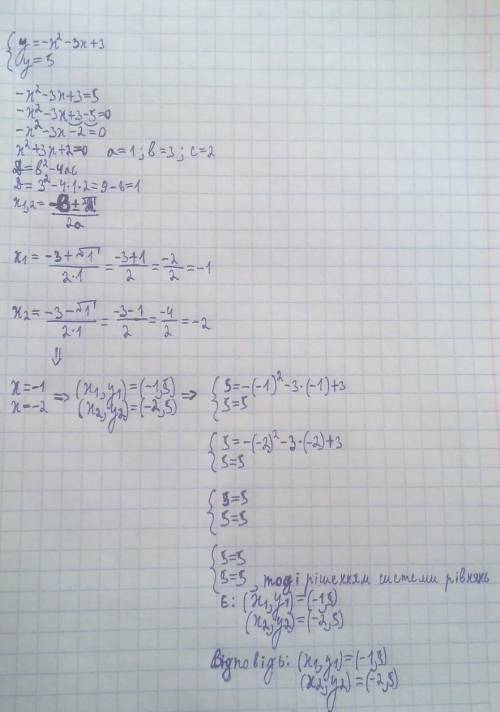 { y = -x² - 3x + 3
{ y = 5
-x² - 3x + 3 = 5
-x² - 3x + 3 - 5 = 0
-x² - 3x - 2 = 0
x² + 3x + 2 = 0 a = 1; b = 3; c = 2
D = b² - 4ac
D = 3² - 4·1·2 = 9 - 8 = 1
x₁,₂ = (-b ± √D) / 2a
x₁ = (-3 + √1) / (2·1) = (-3 + 1) / 2 = -2/2 = -1
x₂ = (-3 - √1) / (2·1) = (-3 - 1) / 2 = -4/2 = -2
⇓
x = -1
x = -2 ⇒ (x₁, y₁) = (-1, 5)
(x₂, y₂) = (-2, 5) ⇒ { 5 = -(-1)² - 3·(-1) + 3
{ 5 = 5
{ 5 = -(-2)² - 3·(-2) + 3
{ 5 = 5
{ 5 = 5
{ 5 = 5
{ 5 = 5
{ 5 = 5, тоді рішенням системи рівнянь
є: (x₁, y₁) = (-1, 5)
(x₂, y₂) = (-2, 5)
Відповідь: (x₁, y₁) = (-1, 5)
(x₂, y₂) = (-2, 5)